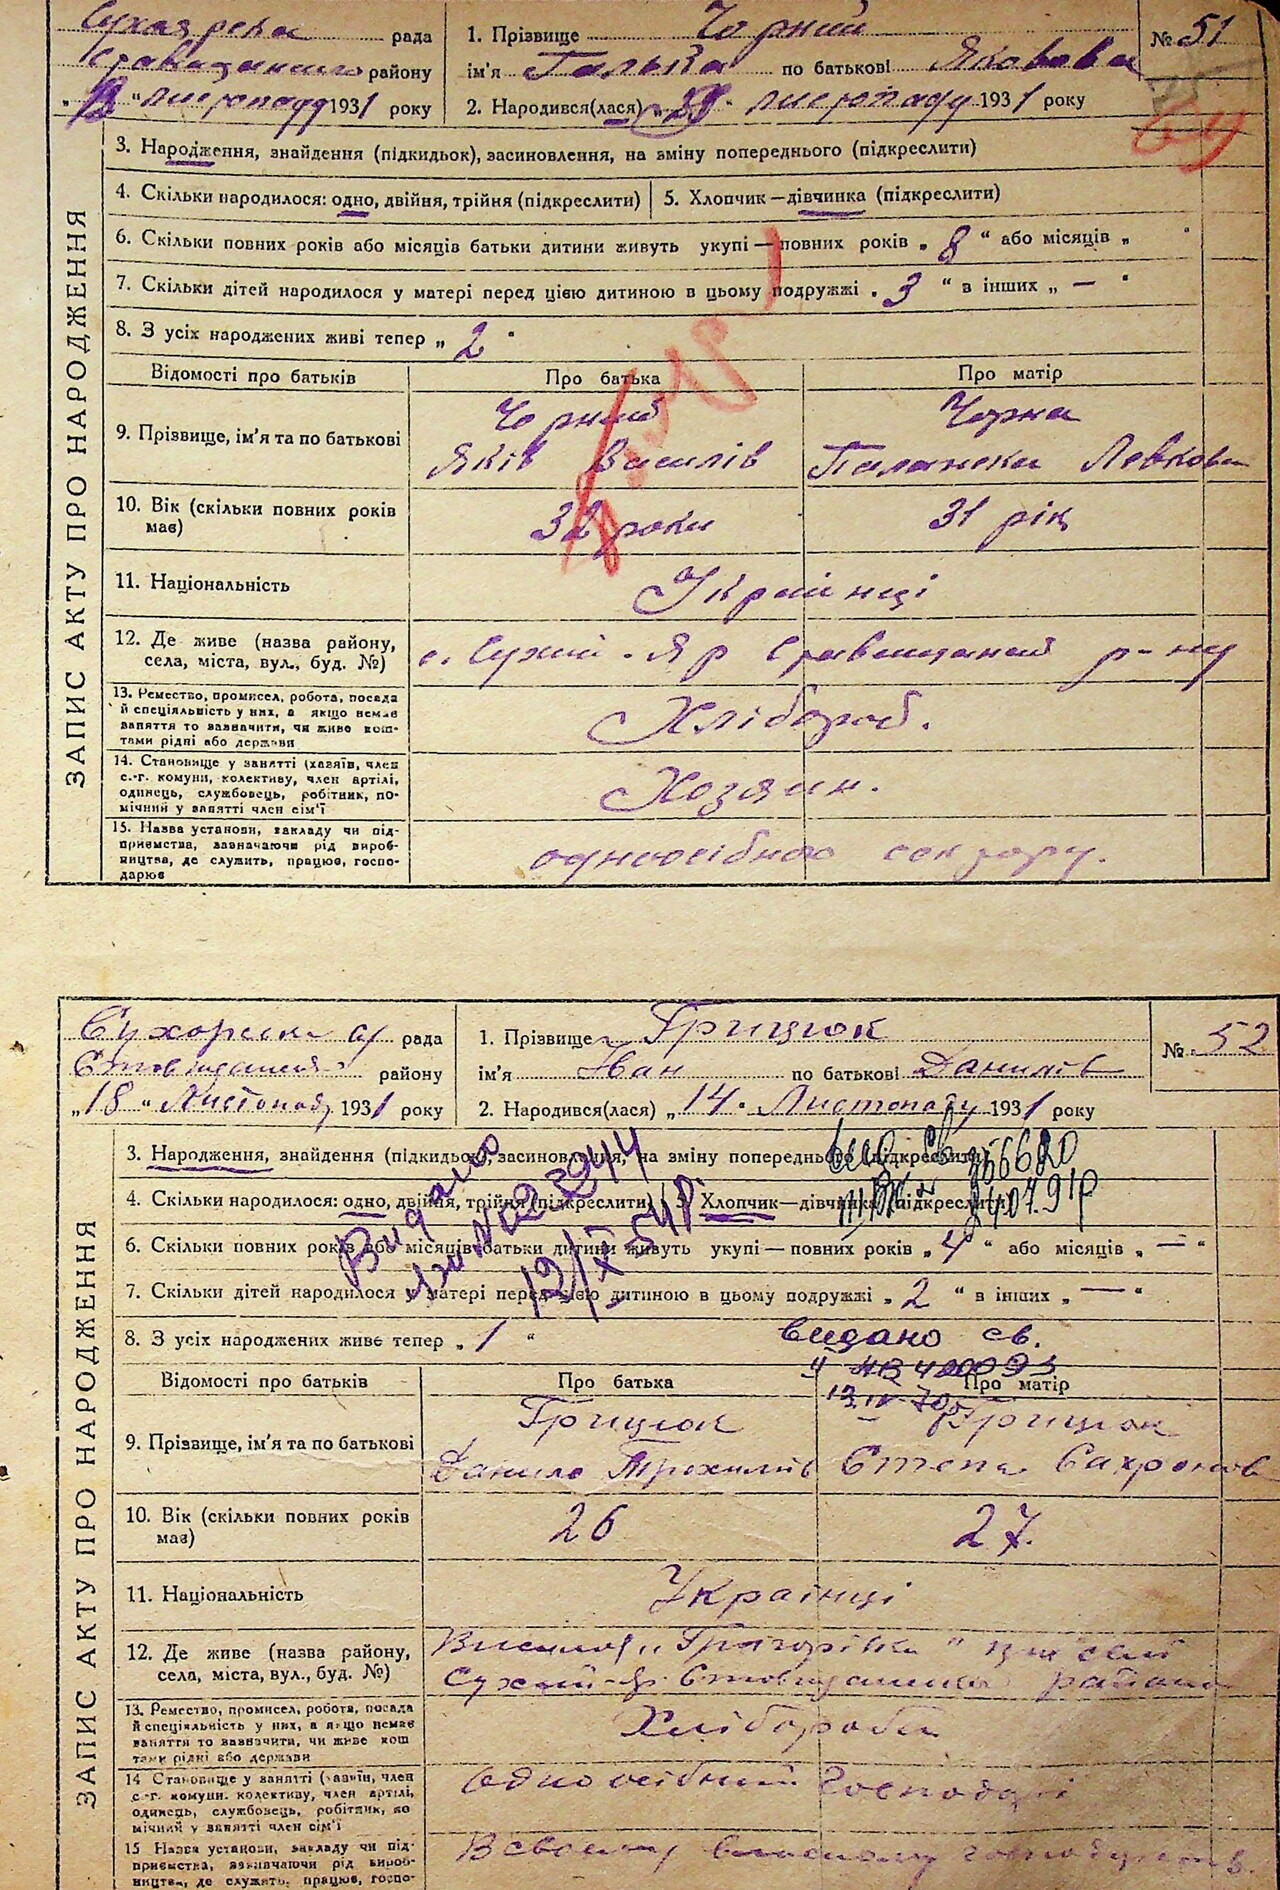 рада
району
" листопаду 1931 року
1. Прізвище Чорний
ім'я Галька по батькові Яковова
2. Народився(лася) листопаду 1931 року
№ 51
ЗАПИС АКТУ ПРО НАРОДЖЕННЯ
3. Народження, знайдення (підкидьок), засиновлення, на зміну попереднього (підкреслити)
4. Скільки народилося: одно, двійня, трійня (підкреслити) 5. Хлопчик—дівчинка (підкреслити)
6. Скільки повних років або місяців батьки дитини живуть укупі—повних років „ 8 " або місяців „ "
7. Скільки дітей народилося у матері перед цією дитиною в цьому подружжі „ 3 " в інших „ — "
8. З усіх народжених живі тепер „ 2 "
Відомості про батьків Про батька Про матір
9. Прізвище, ім'я та по батькові
Чорний
Яків Василів
Чорна
Палажка Левкова
10. Вік (скільки повних років має)
32 роки 31 рік
11. Національність Українці
12. Де живе (назва району,
села, міста, вул., буд. №)
с. Сухий-Яр р-ну
13. Ремество, промисел, робота, посада
й спеціяльність у них, а якщо немає
заняття то зазначити, чи живе кош-
тами рідні або держави
Хлібороб.
14. Становище у занятті (хазяїн, член
с.-г. комуни, колективу, член артілі,
одинець, службовець, робітник, по-
мічний у занятті член сім'ї
Хозяин.
15. Назва установи, закладу чи під-
приємства, зазначаючи рід вироб-
ництва, де служить, працює, госпо-
дарює
одноосібного сектору.
рада
району
„18" Листопаду 1931 року
1. Прізвище Грицюк
ім'я Іван по батькові Данилів
2. Народився(лася) „14" Листопаду 1931 року
№ 52
ЗАПИС АКТУ ПРО НАРОДЖЕННЯ
3. Народження, знайдення (підкидьок), засиновлення, на зміну попереднього (підкреслити)
4. Скільки народилося: одно, двійня, трійня (підкреслити) 5. Хлопчик—дівчинка (підкреслити)
6. Скільки повних років або місяців батьки дитини живуть укупі—повних років „ 4 " або місяців „ — "
7. Скільки дітей народилося у матері перед цією дитиною в цьому подружжі „ 2 " в інших „ — "
8. З усіх народжених живе тепер „ 1 "
Видано
видано св.
Відомості про батьків Про батька Про матір
9. Прізвище, ім'я та по батькові
Грицюк
Данило Трохимів
Грицюк
Степа
10. Вік (скільки повних років
має)
26 27.
11. Національність Українці
12. Де живе (назва району,
села, міста, вул., буд. №)
"Григорівка"
Сухий-Яр
13. Ремество, промисел, робота, посада
й спеціяльність у них, а якщо немає
заняття то зазначити, чи живе кош
тами рідні або держави
Хлібороби
14 Становище у занятті (хазяїн, член
с.-г. комуни. колективу, член артілі,
одинець, службовець, робітник, по
мічний у занятті член сім'ї
Одноосібний господарі
15 Назва установи, закладу чи під-
приємства, зазначаючи рід вироб-
ництва, де служить, працює, госпо-
В своему власному